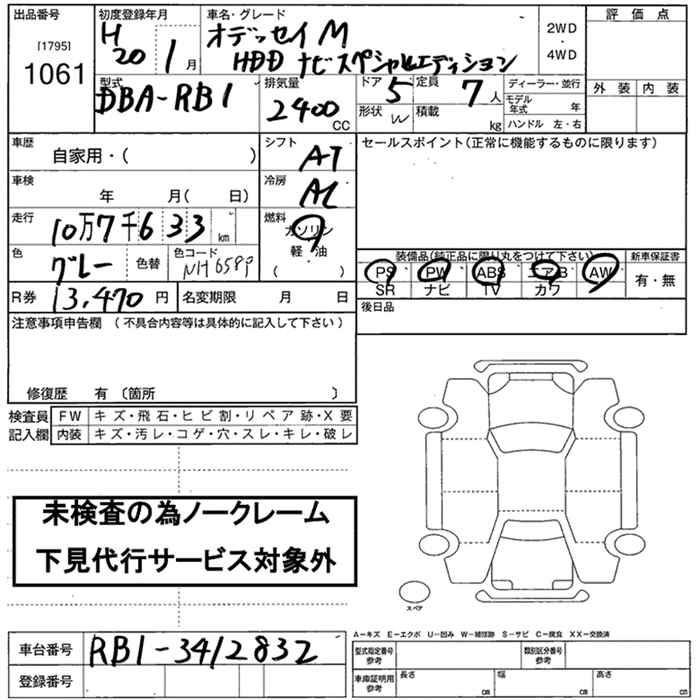 出品番号
[1795]
1061
初度登録年月
H 20 1月
車名・グレード
オデッセイ M
HDD ナビスペシャルエディション
2WD
・
4WD
評価点
外装 内装
型式
DBA-RB1
排気量
2400 CC
ドア 5
形状 W
定員 7人
積載 kg
ディーラー・並行
モデル年式 年
ハンドル 左・右
車歴
自家用・( )
シフト
AT
セールスポイント(正常に機能するものに限ります)
車検
年 月( 日)
冷房
AC
走行
10万7千633km
燃料
ガソリン
軽・油
( )
色
グレー 色替
色コード
NH658P
装備品(純正品に限り丸をつけて下さい)
PS PW ABS エアB AW
SR ナビ TV カワ
新車保証書
有・無
R券 13,470円
名変期限 月 日
後日品
注意事項申告欄 (不具合内容等は具体的に記入して下さい)
修復歴 有 〔箇所 〕
検査員記入欄
FW キズ・飛石・ヒビ割・リペア跡・X要
内装 キズ・汚レ・コゲ・穴・スレ・キレ・破レ
未検査の為ノークレーム
下見代行サービス対象外
スペア
A−キズ E−エクボ U−凹み W−補修跡 S−サビ C−腐食 XX−交換済
車台番号 RB1-3412832
登録番号
型式指定番号
参考
類別区分番号
参考
車庫証明用
参考
長さ cm 幅 cm 高さ cm